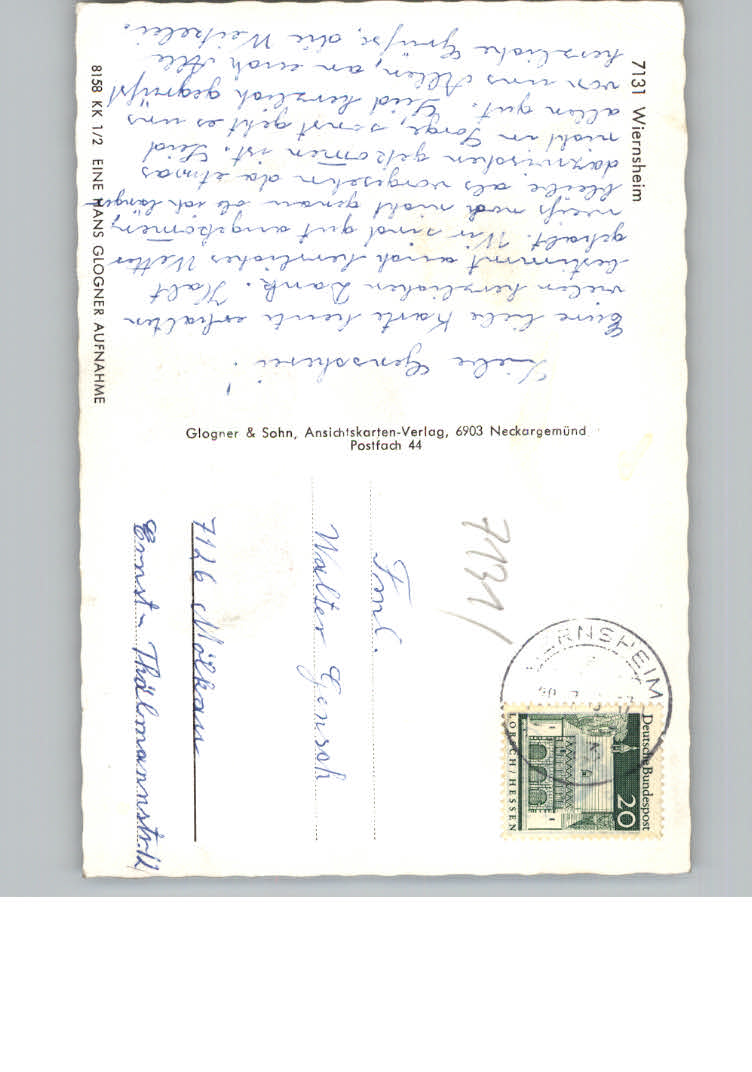 7131 Wiernsheim
Liebe Genscherei!
Eure liebe Karte heute erhalten
vielen herzlichen Dank. Habt
bestimmt auch herrliches Wetter
gehabt. Wir sind gut angekommen,
weiß noch nicht genau ob ich länger
bleibe als vorgesehn da etwas
dazwischen gekomen ist. Seid
nicht in Sorge, sonst geht es uns
allen gut. Seid herzlich gegrüßt
von uns Allen, an euch Alle
herzliche Grüße, die Weitelei.
8158 KK 1/2 EINE HANS GLOGNER AUFNAHME
Glogner & Sohn, Ansichtskarten-Verlag, 6903 Neckargemünd
Postfach 44
7131
WIERNSHEIM
Deutsche Bundespost
20
LORSCH/HESSEN
Faml.
Walter Gensch
7126 Mölkau
Ernst-Thälmannstr. 12